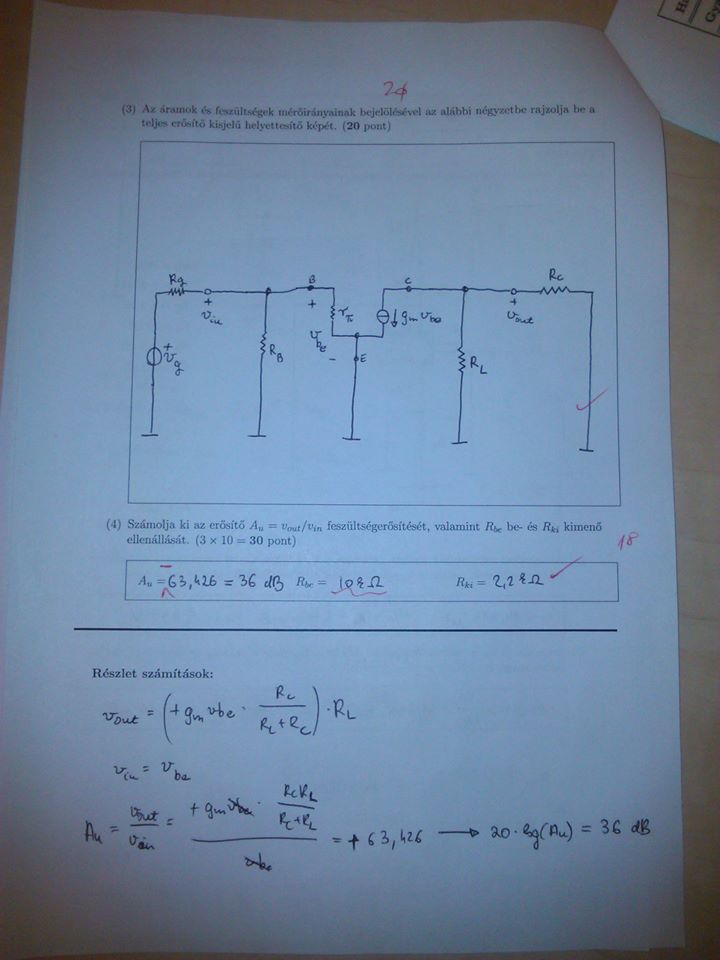 Ha
Gy
20
(3) Az áramok és feszültségek mérőirányainak bejelölésével az alábbi négyzetbe rajzolja be a
teljes erősítő kisjelű helyettesítő képét. (20 pont)
Rg
B
C
Rc
+
vin
+
rπ
gm vbe
+
vout
+
vg
RB
vbe
-
E
RL
(4) Számolja ki az erősítő Au = vout/vin feszültségerősítését, valamint Rbe be- és Rki kimenő
ellenállását. (3 × 10 = 30 pont)
18
Au = 63,426 = 36 dB Rbe = 10kΩ Rki = 2,2kΩ
Részlet számítások:
vout = (+gm vbe · Rc / (RL + Rc)) · RL
vin = vbe
Au = vout / vin = +gm vbe · RcRL / (Rc+RL) / vbe = + 63,426 → 20·lg(Au) = 36 dB